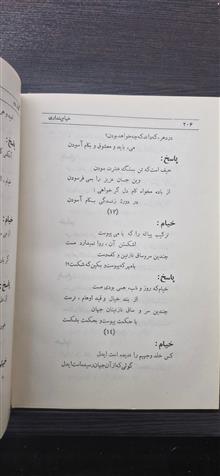 ۲۰۶
خیام‌پنداری
دردهر، که داند که چه خواهد بودن؟
می، باید و معشوق و بکام آسودن
پاسخ:
حیف است که تن بسنگ عشرت سودن
وین جسان عزیز را بمی فرسودن
از باده مخواه کام دل گر خواهی :
در دورهٔ زندگی بکام آسودن
(۱۳)
خیام :
ترکیب پیاله را که با می پیوست
اشکستن آن، روا نمیدارد مست
چندین سر و ساق نازنین و کف دست
با مهر که پیوست و بکین که شکست؟!
پاسخ:
خیام که روز و شب، همی بودی مست
از بند خیال و قید اوهام، نرست
چندین سر و ساق نازنینان جهان
با حکمت پیوست و بحکمت بشکست
(۱٤)
خیام :
کس خلد و جحیم را ندیده است ایدل
گوئی که از آن جهان رسیده است ایدل